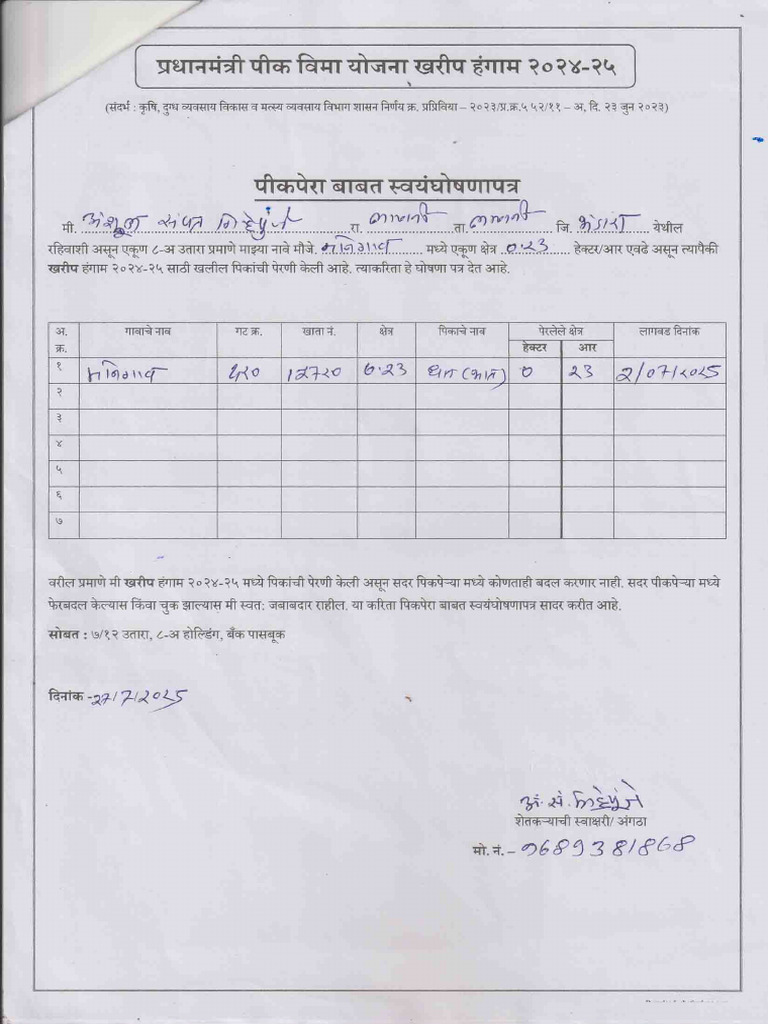 प्रधानमंत्री पीक विमा योजना खरीप हंगाम २०२४-२५
(संदर्भ : कृषि, दुग्ध व्यवसाय विकास व मत्स्य व्यवसाय विभाग शासन निर्णय क्र. प्रप्रिविया – २०२३/प्र.क्र.५५२/११ – अ, दि. २३ जुन २०२३)
पीकपेरा बाबत स्वयंघोषणापत्र
मी. अंशुल संपत गिर्हेपुंजे रा. लाखनी ता. लाखनी जि. भंडारा येथील
रहिवाशी असून एकूण ८-अ उतारा प्रमाणे माझ्या नावे मौजे. मध्ये एकूण क्षेत्र ०.२३ हेक्टर/आर एवढे असून त्यापैकी
खरीप हंगाम २०२४-२५ साठी खलील पिकांची पेरणी केली आहे. त्याकरिता हे घोषणा पत्र देत आहे.
अ. क्र. गावाचे नाव गट क्र. खाता नं. क्षेत्र पिकाचे नाव पेरलेले क्षेत्र लागवड दिनांक
हेक्टर आर
१ 12720 0.23 धान (भात) 0 23 2/07/2025
२
३
४
५
६
७
वरील प्रमाणे मी खरीप हंगाम २०२४-२५ मध्ये पिकांची पेरणी केली असून सदर पिकपेऱ्या मध्ये कोणताही बदल करणार नाही. सदर पीकपेऱ्या मध्ये
फेरबदल केल्यास किंवा चुक झाल्यास मी स्वत: जबाबदार राहील. या करिता पिकपेरा बाबत स्वयंघोषणापत्र सादर करीत आहे.
सोबत : ७/१२ उतारा, ८-अ होल्डिंग, बँक पासबूक
दिनांक -27/7/2025
अं. सं. गिर्हेपुंजे
शेतकऱ्याची स्वाक्षरी/ अंगठा
मो. नं. – 9689381868